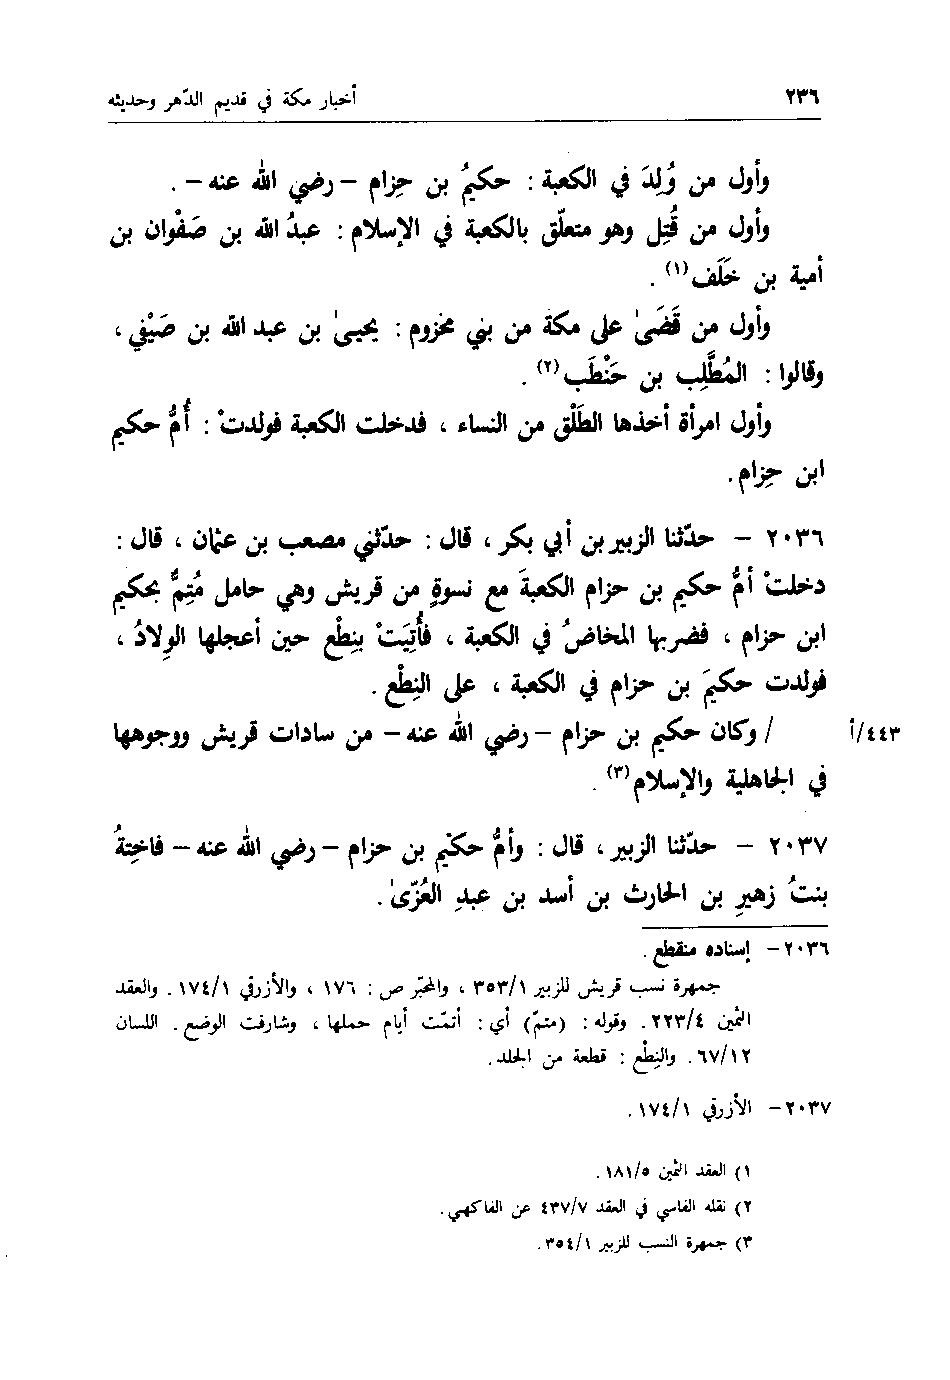 ٢٣٦ أخبار مكة في قديم الدّهر وحديثه
وأول من وُلِدَ في الكعبة : حكيمُ بن حِزام – رضي الله عنه – .
وأول من قُتِل وهو متعلّق بالكعبة في الإسلام : عبدُ الله بن صَفْوان بن
أمية بن خَلَف(١) .
وأول من قَضَىٰ على مكة من بني مخزوم : يحيىٰ بن عبد الله بن صَيْفي ،
وقالوا : المُطَّلِب بن حَنْطَب(٢) .
وأول امرأة أخذها الطَلْق من النساء ، فدخلت الكعبة فولدتْ : أُمُّ حكيم
ابن حِزام .
٢٠٣٦ – حدّثنا الزبير بن أبي بكر ، قال : حدّثني مصعب بن عثمان ، قال :
دخلتْ أمُّ حكيم بن حزام الكعبةَ مع نسوةٍ من قريش وهي حامل مُتِمٌّ بحكيم
ابن حزام ، فضربها المخاضُ في الكعبة ، فأُتِيَتْ بِنِطْع حين أعجلها الوِلادُ ،
فولدت حكيمَ بن حزام في الكعبة ، على النِطْع .
/ وكان حكيم بن حزام – رضي الله عنه – من سادات قريش ووجوهها ٤٤٣/أ
في الجاهلية والإسلام(٣) .
٢٠٣٧ – حدّثنا الزبير ، قال : وأمُّ حكيْم بن حزام – رضي الله عنه – فاخِتةُ
بنتُ زهيرِ بن الحارث بن أسد بن عبدِ العُزّىٰ .
٢٠٣٦ – إسناده منقطع .
جمهرة نسب قريش للزبير ٣٥٣/١ ، والمحبّر ص : ١٧٦ ، والأزرقي ١٧٤/١ . والعقد
الثمين ٢٢٣/٤ . وقوله : (متمّ) أي : أتمّت أيام حملها ، وشارفت الوضع . اللسان
٦٧/١٢ . والنِطْع : قطعة من الجلد .
٢٠٣٧ – الأزرقي ١٧٤/١ .
١) العقد الثمين ١٨١/٥ .
٢) نقله الفاسي في العقد ٤٣٧/٧ عن الفاكهي .
٣) جمهرة النسب للزبير ٣٥٤/١ .